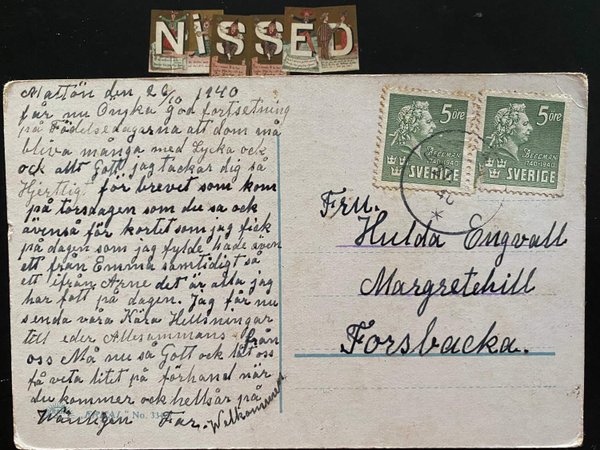 NiSSED
Nattön den 20/10 1940
får nu Önska god fortsetning
på Födelsedagarna att dom må
bliva många med Lycka ock
ock allt Gott jag tackar dig så
Hjertligt för brevet som kom
på torsdagen som du sa och
ävenså för kortet som jag fick
på dagen som jag fylde hade även
ett från Emma samtidigt så
ett ifrån Arne det är alla jag
har fått på dagen. Jag får nu
senda våra Kära Hellsningar
till eder Allesammans från
oss Må nu så Gott ock låt oss
få veta litet på förhand när
du kommer ock hellsår på
Wänligen Far. Welkommen
No. 334
5 ÖRE
BELLMAN
1740-1940
SVERIGE
5 ÖRE
BELLMAN
1740-1940
SVERIGE
40
Fru.
Hulda Engvall
Margretehill
Forsbacka.